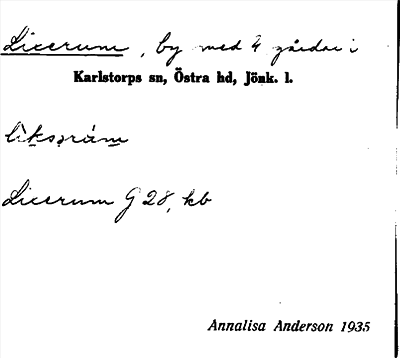 Licerum, by med 4 gårdar i
Karlstorps sn, Östra hd, Jönk. l.
Licerum G 28, kb
Annalisa Anderson 1935